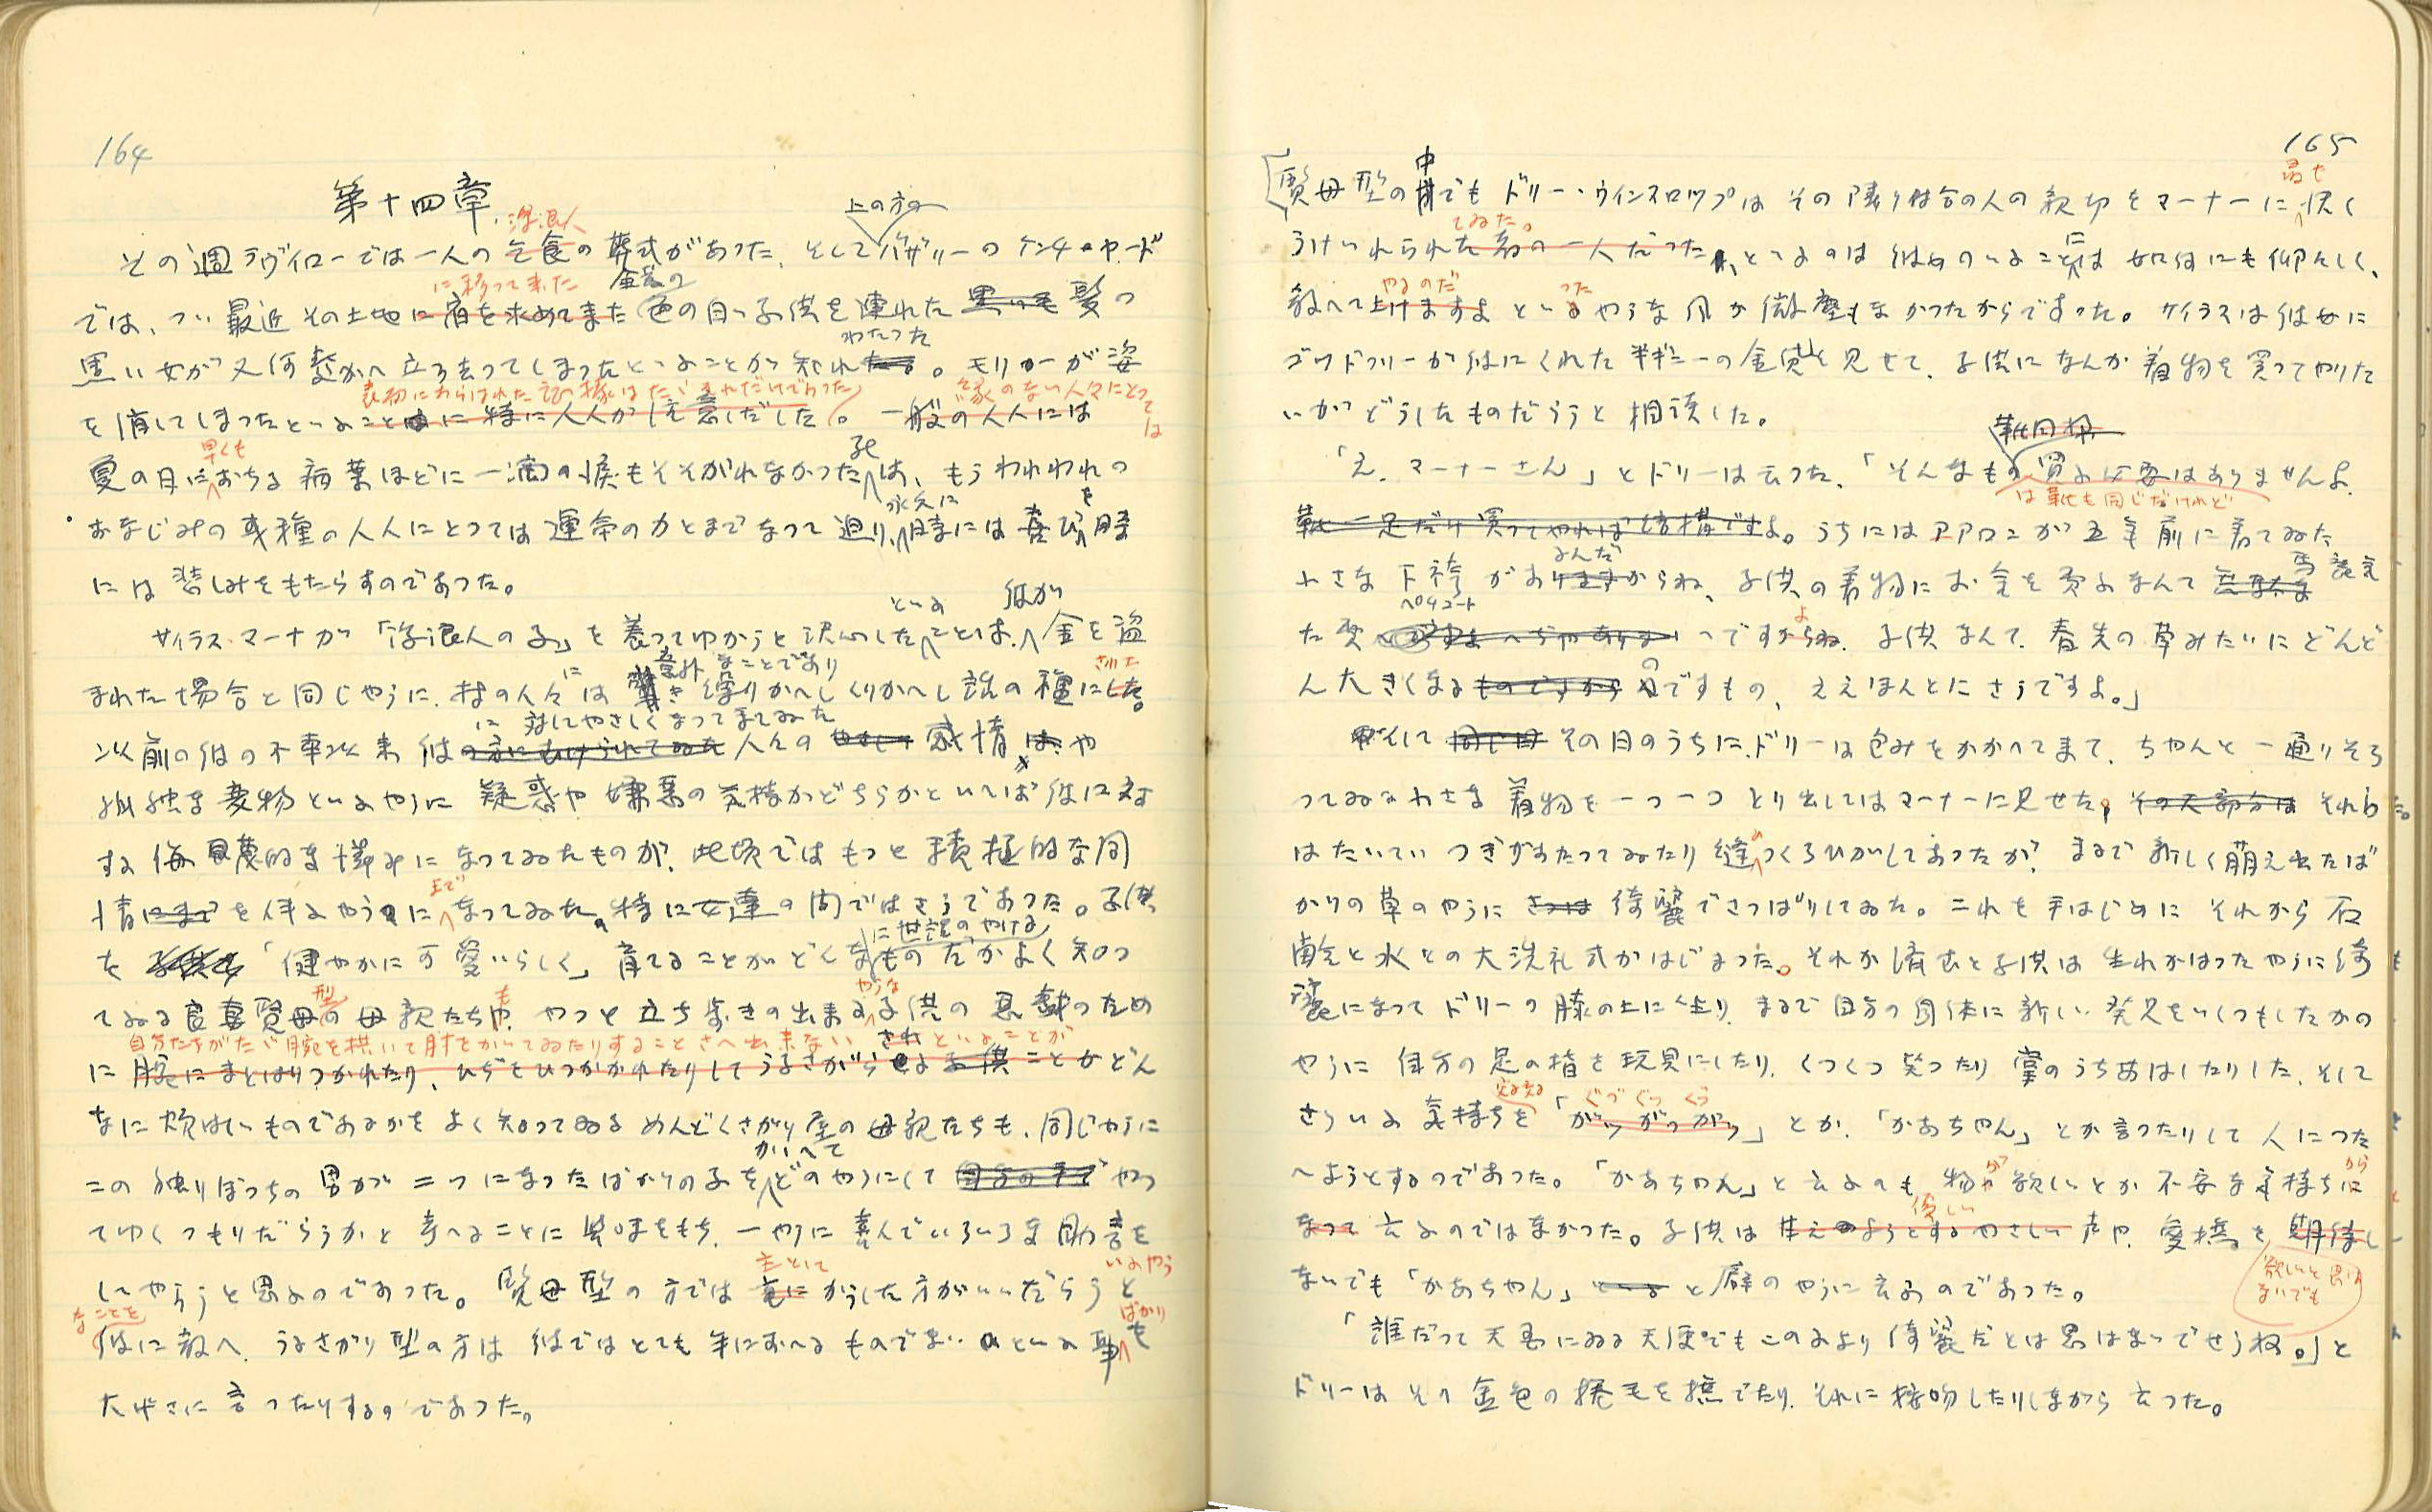 164
第十四章
浮浪人
上の方の
その週ラヴイローでは一人の乞食の葬式があつた、そしてバザリーのケンチ・ヤード
に移つて来た 金髪の
では、つい最近その土地に宿を求めてきた色の白い子供を連れた黒い毛髪の
わたつた
黒い女が又何処かへ立ち去つてしまつたといふことが知れた。モリーが姿
表物にあらはれた はたゞそれだけであつた 縁のない人々にとつては
を消してしまつたといふことは特に人人が注意しだした。一般の人人には
早くも 死
夏の日におちる病葉ほどに一滴の涙もそそがれなかつたは、もうわれわれの
永久に を
おなじみの或種の人人にとつては運命の力とまでなつて迫り、時には喜び時
には悲しみをもたらすのであつた。
といふ 彼が
サイラス・マーナが「浮浪人の子」を養つてゆかうと決心したことは、金を盗
に 意外なことであり された
まれた場合と同じやうに、村の人々は驚き繰りかへしくりかへし話の種にした。
に対してやさしくなつてきてゐた
以前の彼の不幸以来彼の方にむけられてゐた人々の 感情は、や
孤独な変物といふやうに疑惑や嫌悪の気持がどちらかといへば彼に対
する侮蔑的な憐みになつてゐたものが、此頃ではもつと積極的な同
まで
情にまでを伴ふやうになつてゐた。特に女達の間ではさうであつた。子供
に世話のやける
を子供を「健やかに可愛いらしく」育てることがどんなものだかよく知つ
型 も やうな
てゐる良妻賢母の母親たちや、やつと立ち歩きの出来る子供の悪戯のため
自分たちがたゞ腕を拱いて肘をかいてゐたりすることさへ出来ない されといふことが
に腕にまとはりつかれたり、ひぢをひつかかれたりしてうるさがらせる子供ことがどん
なに煩はしいものであるかをよく知つてゐるめんどくさがり屋の母親たちも、同じやうに
かゝへて
この独りぼつちの男が二つになつたばかりの子をどのやうにして自分の手でやつ
てゆくつもりだらうかと考へることに興味をもち、一やうに喜んでいろいろな助言を
主として いふやう
してやらうと思ふのであつた。賢母型の方では主にかうした方がいいだらうと
なことを ばかり
彼に教へ、うるさがり型の方は彼ではとても手におへるものでないといふ事を
大げさに言つたりするのであつた。
165
中 最も
賢母型の間でもドリー・ウインスロツプはその隣り付合の人の親切をマーナーに快く
てゐた。 に
うけいれられた者の一人だつた、といふのは彼女のいふことは如何にも仰々しく、
やるのだ つた
教へて上げますよといふやうな風が微塵もなかつたからであつた。サイラスは彼女に
ゴツドフリーが彼にくれた半ギニーの金貨を見せて、子供になんか着物を買つてやりた
いがどうしたものだらうと相談した。
靴同様
「え、マーナーさん」とドリーは云つた、「そんなもの買ふ必要はありませんよ。
は靴も同じだけれど
靴一足だけ買つてやれば結構ですよ。うちにはアアロンが五年前に着てゐた
るんだ 馬鹿気
小さな下袴がありますからね、子供の着物にお金を費ふなんて
ペチコート よ
た ですからね。子供なんて、春先の草みたいにどんど
の
ん大きくなるものですからですもの、ええほんとにさうですよ。」
そして同じ日その日のうちに、ドリーは包みをかかへてきて、ちやんと一通りそろ
つてゐる小さな着物を一つ一つとり出してはマーナーに見せた。その大部分はそれら
はたいていつぎがあたつてゐたり縫つくろひがしてあつたが、まるで新しく萌え出たば
かりの草のやうに 綺麗でさつぱりしてゐた。これを手はじめにそれから石
鹸と水との大洗礼式がはじまつた。それが済むと子供は生れかはつたやうに綺
麗になつてドリーの膝の上に坐り、まるで自分の身体に新しい発見をいくつもしたかの
やうに自分の足の指を玩具にしたり、くつくつ笑つたり掌のうちあはしたりした、そして
ぐつ ぐつ くう
さういふ気持ちを「がツがつがつ」とか、「かあちやん」とか言つたりして人につた
が から
へようとするのであつた。「かあちやん」と云ふのも物が欲しいとか不安な気持ちに
優しい
なつて云ふのではなかつた。子供は甘えようとするやさしい声や、愛撫を期待し
欲しいと思は
ないでも
ないでも「かあちやん」 と癖のやうに云ふのであつた。
「誰だつて天国にゐる天使でもこのこより綺麗だとは思はないでせうね。」と
ドリーはその金色の捲毛を撫でたり、それに接吻したりしながら云つた。